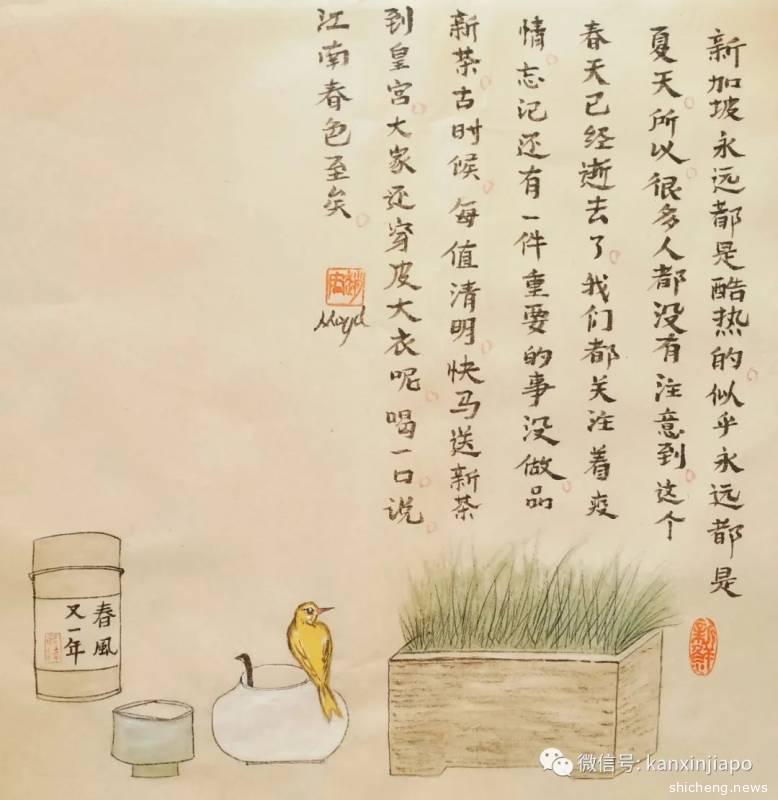 新加坡永远都是酷热的。似乎永远都是
夏天。所以。很多人都没有注意到。这个
春天已经逝去了。我们都关注着疫
情。忘记还有一件重要的事没做。品
新茶。古时候。每值清明。快马送新茶
到皇宫。大家还穿皮大衣呢。喝一口。说。
江南春色至矣。
春風
又一年
新鲜
微信号: kanxinjiapo
shicheng.news